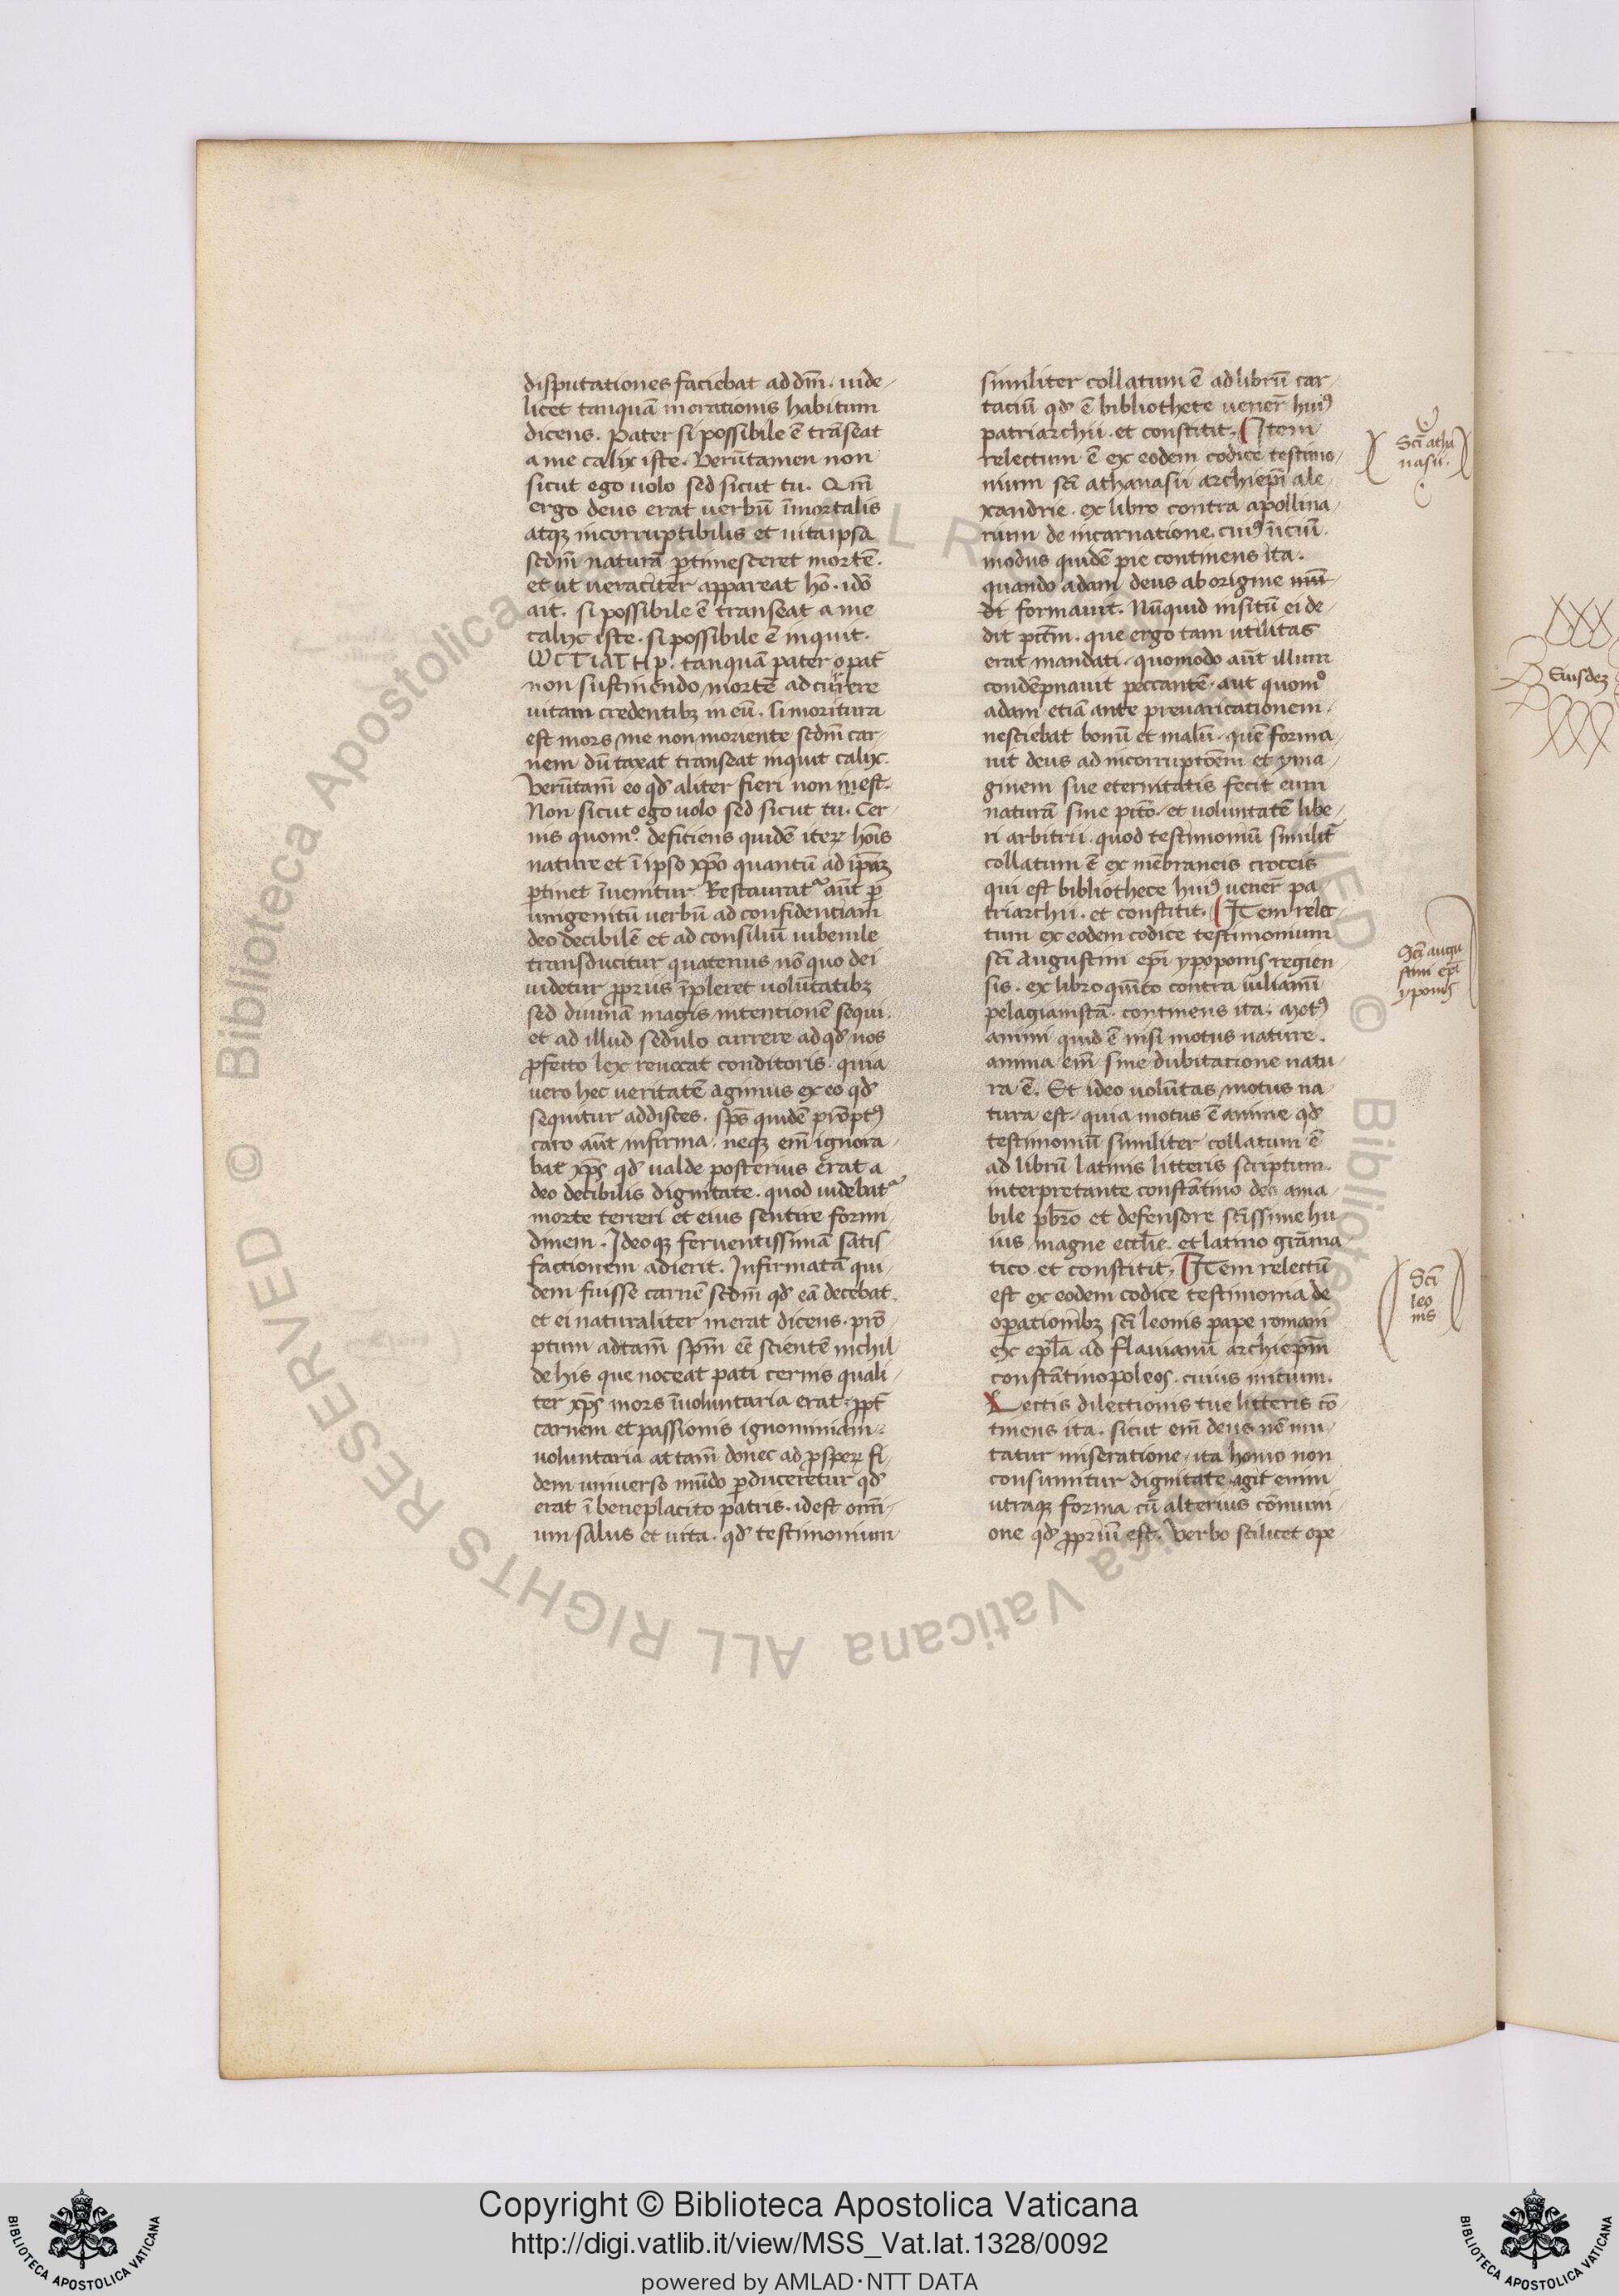 disputationes faciebat ad dm̄. uide-
licet tanquā in orationis habitum
dicens. Pater si possibile ē trāseat
a me calix iste. Verūtamen non
sicut ego uolo sed sicut tu. Qm̄
ergo deus erat uerbū īmortalis
atqꝫ incorruptibilis et uita ipsa
scdm̄ naturā ꝑtimesceret mortē.
et ut ueraciter appareat hō. idō
ait. si possibile ē transeat a me
calix iste. si possibile ē inquit.
tanquā pater o pat̄
non sustinendo mortē ad currere
uitam credentibꝫ in eū. si moritura
est mors me non moriente scdm̄ car-
nem dū taxat transeat inquit calix.
Verūtam̄ eo qd̛ aliter fieri non inest.
Non sicut ego uolo sed sicut tu. Cer-
nis quomº deficiens quidē iteꝝ hoīs
nature et ī ipso xp̄o quantū ad ip̄aꝫ
ꝑtinet īuenitur Restaurat᷑ aūt ꝑ
unigenitū uerbū ad confidentiam
deo decibilē et ad consiliū iubenile
transducitur quatenus nō quo dei
uidetur ꝓprius īpleret uolūtatibꝫ
sed diuinā magis intentionē sequi.
et ad illud sedulo currere ad qd̛ nos
ꝓfecto lex reuocat conditoris. quia
uero hec ueritatē agimus ex eo qd̛
sequitur addisces. sps̄ quidē prōptꝰ
caro aūt infirma. neqꝫ em̄ ignora-
bat xp̄s qd̛ ualde posterius erat a
deo decibilis dignitate. quod uidebat᷑
morte terreri et eius sentire formi-
dinem. Ideoqꝫ feruentissimā satis-
factionem adierit. Infirmatā qui-
dem fuisse carnē scdm̄ qd̛ eā decebat.
et ei naturaliter inerat dicens. prō-
ptum adtam̄ spm̄ eē scientē nichil
de his que noceat pati cernis quali-
ter xp̄s mors īuoluntaria erat. ꝓpt̄
carnem et passionis ignominiam.
uoluntaria attam̄ donec ad ꝓspeꝝ fi-
dem uniuerso mūdo ꝑduceretur qd̛
erat ī beneplacito patris. id est om̄i-
um salus et uita. qd̛ testimonium
similiter collatum ē ad librū car-
taciū qd̛ ē bibliothece uener̄ huiꝰ
patriarchii. et constitit. Item
relectum ē ex eodem codice testimo-
nium sc̄i athanasii archiep̄i ale-
xandrie. ex libro contra apollina-
rium de incarnatione. cuiꝰ īciū.
modus quidē pie continens ita.
quando adam deus ab origine mū-
di formauit. Nūquid insitū ei de-
dit pctm̄. que ergo tam utilitas
erat mandati. quomodo aūt illum
condēpnauit peccantē. aut quomº
adam etiā ante preuaricationem
nesciebat bonū et malū. quē forma-
uit deus ad incorruptoēm et yma-
ginem sue eternitatis fecit eum
naturā sine pctō. et uoluntatē libe-
ri arbitrii. quod testimoniū similit̄
collatum ē ex mēbraneis croceis
qui est bibliothece huiꝰ uener̄ pa-
triarchii. et constitit. Item relec-
tum ex eodem codice testimonium
sc̄i Augustini ep̄i ypoponis regien-
sis. ex libro quīto contra iulianū
pelagianistā. continens ita. motꝰ
animi quid ē nisi motus nature.
anima em̄ sine dubitacione natu-
ra ē. Et ideo uolūtas motus na-
tura est. quia motus ē anime qd̛
testimoniū similiter collatum ē
ad librū latinis litteris scriptum.
interpretante constātino deo ama-
bile pbr̄o et defensore sc̄issime hu-
ius magne eccl̄ie. et latino grāma-
tico et constitit. Item relectū
est ex eodem codice testimonia de
oꝑationibꝫ sc̄i leonis pape romani
ex epl̄a ad flauianū archiep̄m
constātinopoleos. cuius initium.
Lectis dilectionis tue litteris cō-
tinens ita. sicut em̄ deus nō mu-
tatur miseratione. ita homo non
consumitur dignitate. agit enim
utraqꝫ forma cū alterius cōmuni-
one qd̛ ꝓpriū est. Verbo scilicet ope
Sc̄i atha
nasii.
Sc̄i augu
stini ep̄i
yponēs
Sc̄i
leo
nis
Eiusdeꝫ
© Biblioteca Apostolica Vaticana ALL RIGHTS RESERVED © Biblioteca Apostolica Vaticana ALL RIGHTS RESERVED
Copyright © Biblioteca Apostolica Vaticana
http://digi.vatlib.it/view/MSS_Vat.lat.1328/0092
powered by AMLAD·NTT DATA
BIBLIOTECA APOSTOLICA VATICANA
BIBLIOTECA APOSTOLICA VATICANA